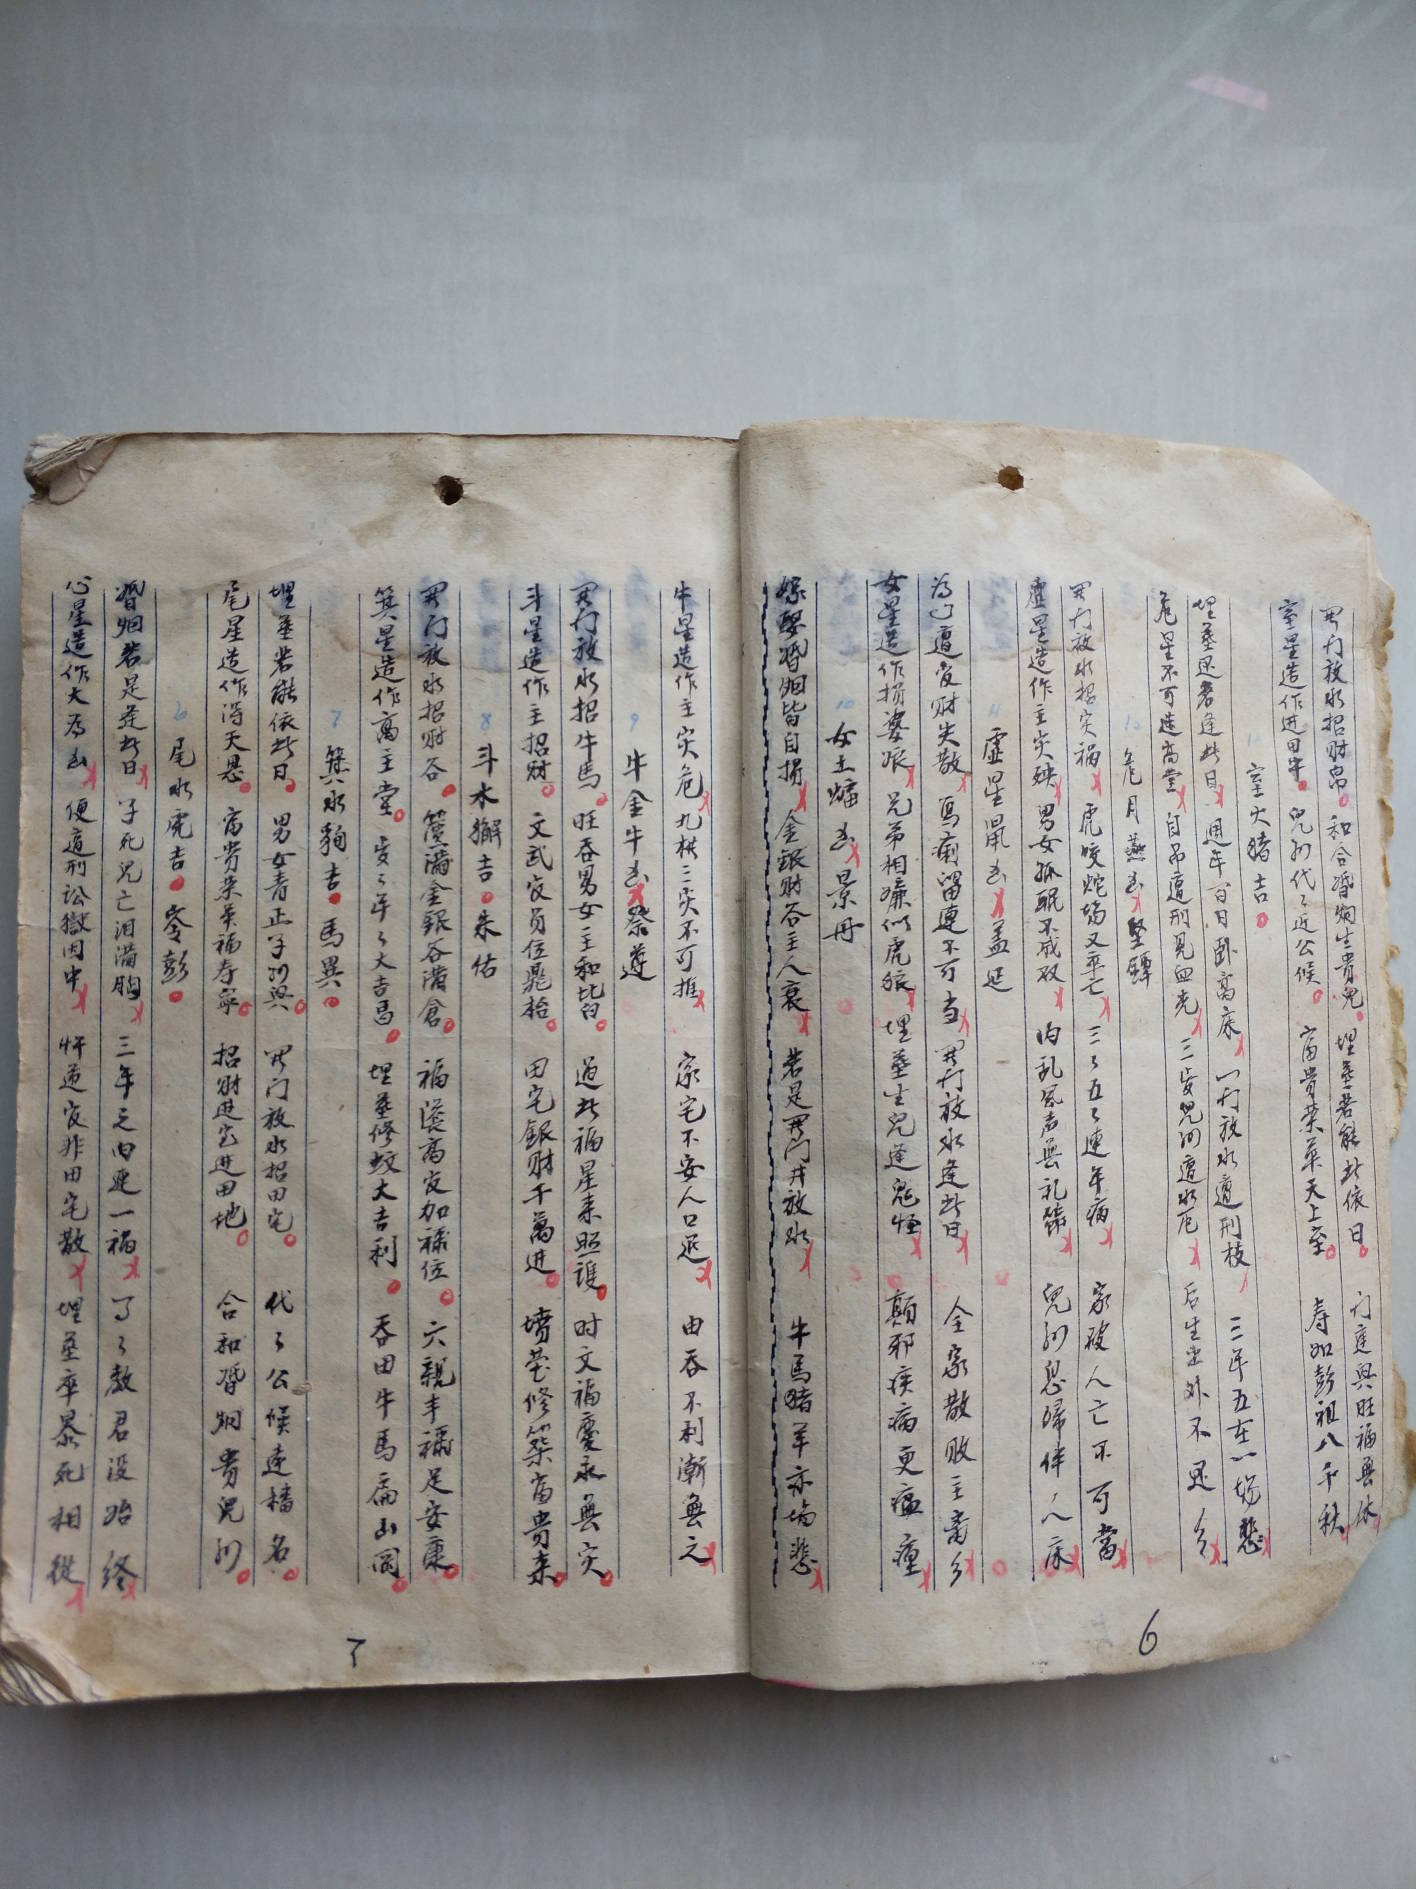 開门放水招財帛 和合婚姻生貴兒 埋塟若能此依日 门庭興旺福無休
室星造作进田牛 兒孙代々近公候 富貴荣華天上至 寿如彭祖八千秋
室火猪吉
埋塟还若逢此日 週年百日卧高床 一行放水遭刑杖 三年五在一场悲
危星不可造高堂 自吊遭刑見血光 三歲兒河遭水厄 后生出外不还乡
12 危月燕凶 堅鐔
開门放水招灾禍 虎咬蛇场又卒亡 三々五々連年病 家破人亡不可當
虛星造作主灾殃 男女孤眠不成双 内乱風声無礼節 兒孙息婦伴人床
11 虛星鼠凶 盖延
為 遭官財失散 馬痢留連不可当 開门放水逢此日 全家散败主 乡
女星造作损婆娘 兄弟相嫌似虎狼 埋塟生兒逢鬼怪 顛邪疾病更瘟癀
10 女土蝠凶 景丹
嫁娶婚姻皆自损 金銀財谷主人衰 若是開门并放水 牛馬猪羊亦 悲
6
牛星造作主灾危 九横三灾不可推 家宅不安人口退 由吞不利漸無之
9 牛金牛凶 祭遵
開门放水招牛馬 旺吞男女主和 過此福星来照護 时文福慶永無灾
斗星造作主招財 文武官员位鼎枱 田宅銀財千萬进 墳茔修築富貴来
8 斗木獬吉 朱佑
開门放水招財谷 篋满金銀谷满倉 福 高官加禄位 六親丰禄足安康
箕星造作高主堂 歲々年々大吉昌 埋塟修坟大吉利 吞田牛馬扁山岡
7 箕水豹吉 馬異
埋塟若能依此日 男女青正子孙興 開门放水招田宅 代々公候逺播名
尾星造作得天恩 富貴荣華福寿寧 招財进宝进田地 合和婚姻貴兒孙
6 尾水虎吉 岑彭
婚姻若是逢此日 子死兒亡泪满胸 三年之内連一禍 了々教君没始終
心星造作大為凶 便遭刑讼獄囚中 忤逆官非田宅散 埋塟卒暴死相従
7